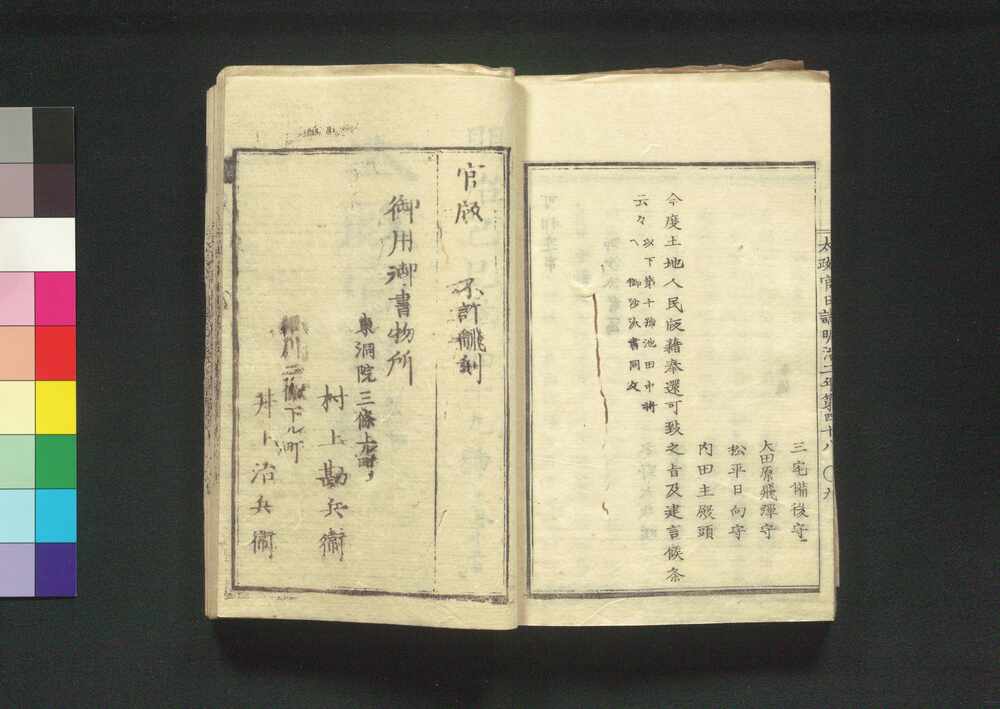 太政官日誌明治二年第四十八 〇九
三宅備後守
大田原飛弾守
松平日向守
内田主殿頭
今度土地人民版籍奉還可致之旨及建言候条
云々 以下第十号池田中将
ヘ 御沙汰書同文
官版 不許翻刻
御用御書物所
東洞院三條上ル町
村上勘兵衛
二條下ル町
井上治兵衛